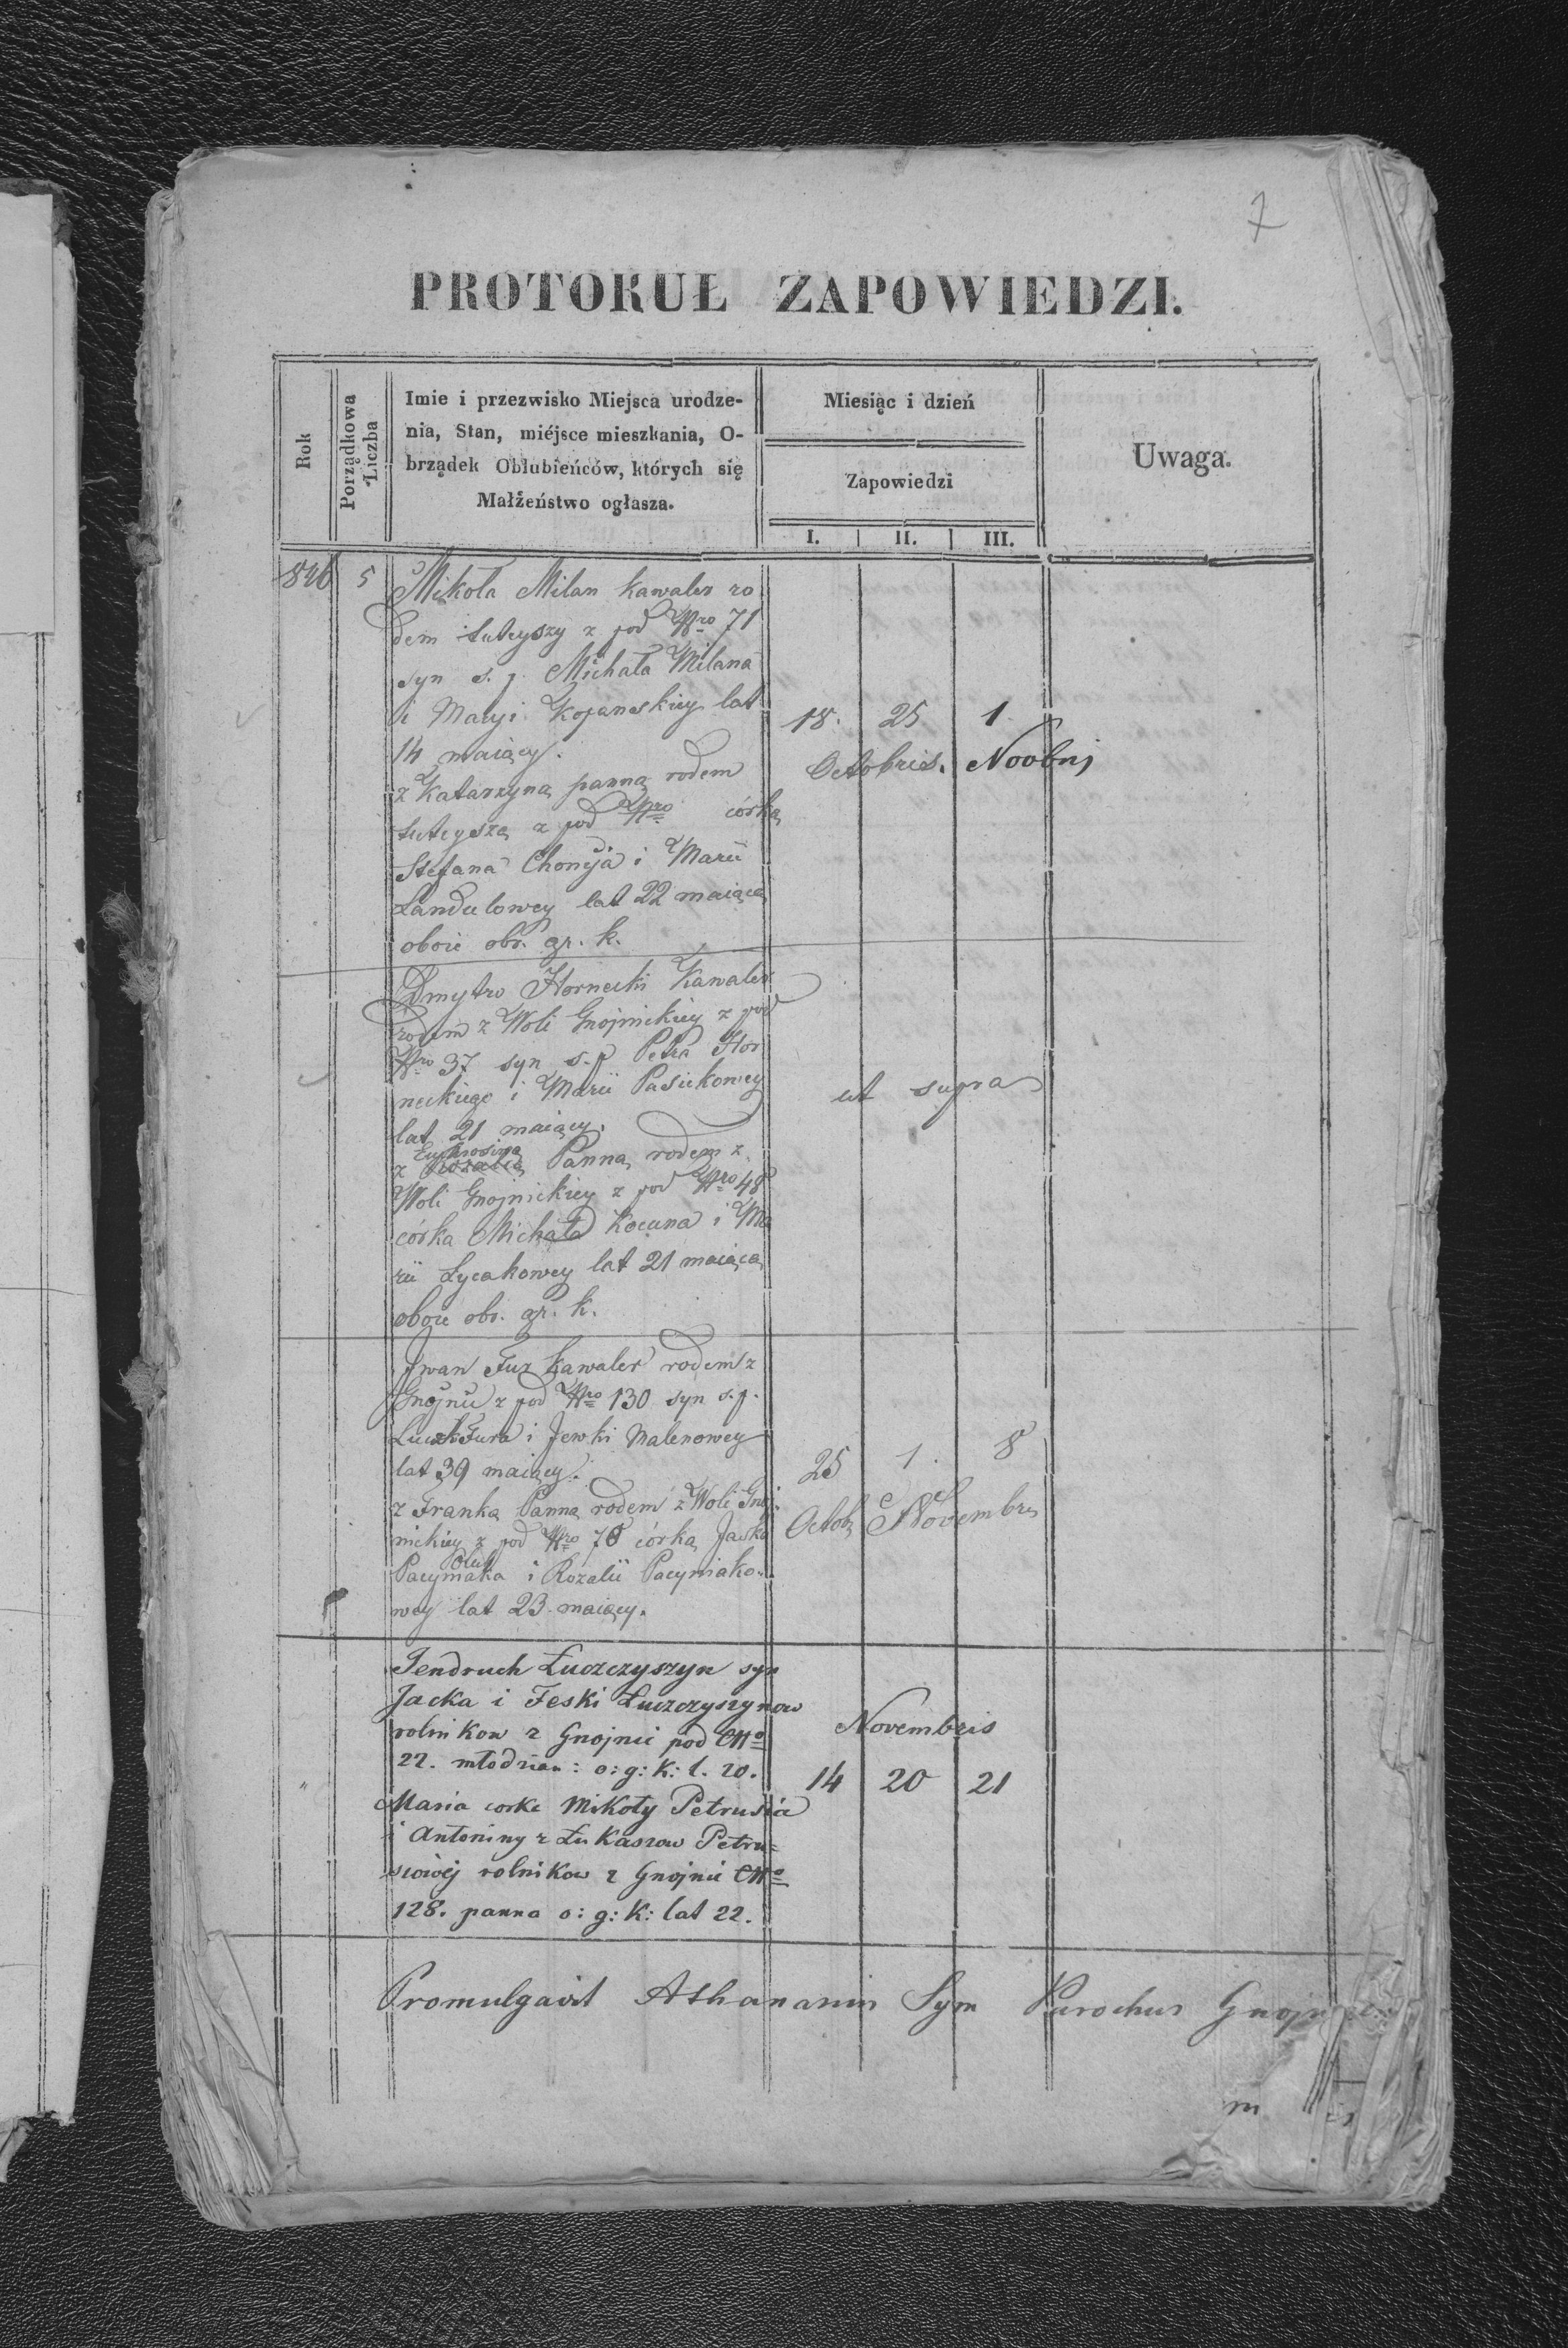 7
PROTOKUŁ ZAPOWIEDZI.
Rok
Porządkowa Liczba
Imie i przezwisko Miejsca urodze-
nia, Stan, miéjsce mieszkania, O-
brządek Oblubieńców, których się
Małżeństwo ogłasza.
Miesiąc i dzień
Zapowiedzi
I. II. III.
Uwaga.
846 5 Mikoła Milan kawaler ro
dem tuteyszy z pod Nro 71
syn s. p. Michała Milana
i Maryi Kopanskiey lat
14 maiący.
18. 25 1.
Octobris. Novbris
z Katarzyną panną rodem
tuteyszą z pod Nro córką
Stefana Chomija i Marii
Landulowey lat 22 maiącą
oboie obr. gr. k.
Dmytro Hornecki Kawaler
rodem z Woli Gnojnickiey z pod
Nro 37 syn s. p Petra Hor
neckiego i Marii Pasiekowey
lat 21 maiący.
ut supra
Eufrosiną
z Rozalią Panną rodem z
Woli Gnojnickiey z pod Nro 48
córka Michała Kocuna i Ma
rii Łycakowey lat 21 maiącą
oboie obr. gr. k.
Jwan Fur kawaler rodem z
Gnojnic z pod Nro 130 syn s. p.
Fura i Jewki Malenowey
lat 39 maiący.
25 1. 8
Octob Novembris
z Franką Panną rodem z Woli Gnoj.
nickiey z pod Nro 78 córką Jacka
Pacymaka i Rozalii Pacyniako-
wey lat 23. maiący.
Jendruch Łuczczyszyn syn
Jacka i Feski Łuczczyszynow
rolnikow z Gnojnic pod No
22. młodzian: o: g: K: l. 20.
Novembris
14 20 21
Maria corka Mikoły Petrusia
i Antoniny z Łukaszow Petru=
siowéj rolnikow z Gnojnic No
128. panna o: g: K: lat 22.
Promulgavit Athanasius Sym Parochus